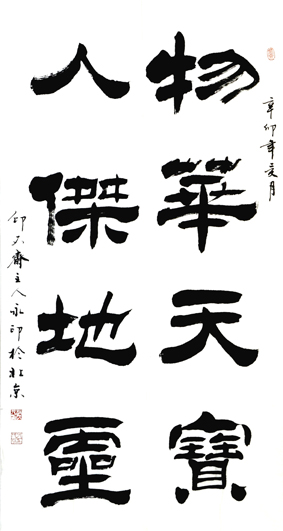 辛卯年亥月
物華天寶
人傑地靈
印不齋主人永印於北京